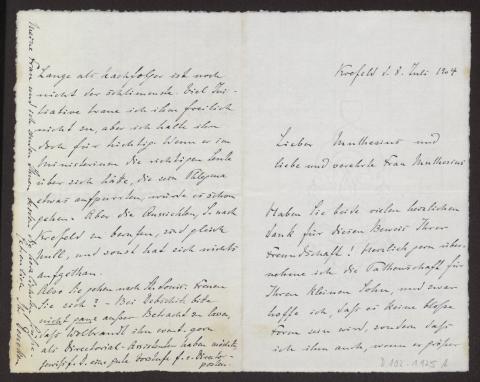 Krefeld d. 8. Juli 1904
Lieber Muthesius und
liebe und verehrte Frau Muthesius
Haben Sie beide vielen herzlichen
Dank für diesen Beweis Ihrer
Freundschaft! Herzlich gern über-
nehme ich die Pathenschaft für
Ihren kleinen Sohn, und zwar
hoffe ich, dass es keine blosse
Form sein wird, sondern dass
ich ihm auch, wenn er grösser
Lange als Nachfolger ist noch
nicht der schlimmste. Viel Ini-
tiative traue ich ihm freilich
nicht zu, aber ich halte ihn
doch für tüchtig. Wenn er im
Ministerium die richtigen Leute
über sich hätte, die sein Phlegma
etwas aufpurrten, würde es schon
gehen. Aber die Aussichten, S. nach
Krefeld zu berufen, sind gleich
null, und sonst hat sich nichts
aufgethan.
Also Sie gehen nach St. Louis. Freuen
Sie sich? - Bei bitte
nicht ganz ausser Betracht zu lassen,
dass ihn event. gern
als Directorial-Assistenten haben möchte,
f. S. eine gute Vorstufe f. e. Director-
posten.
Meine Frau und ich senden Ihnen
D 102-1925 a